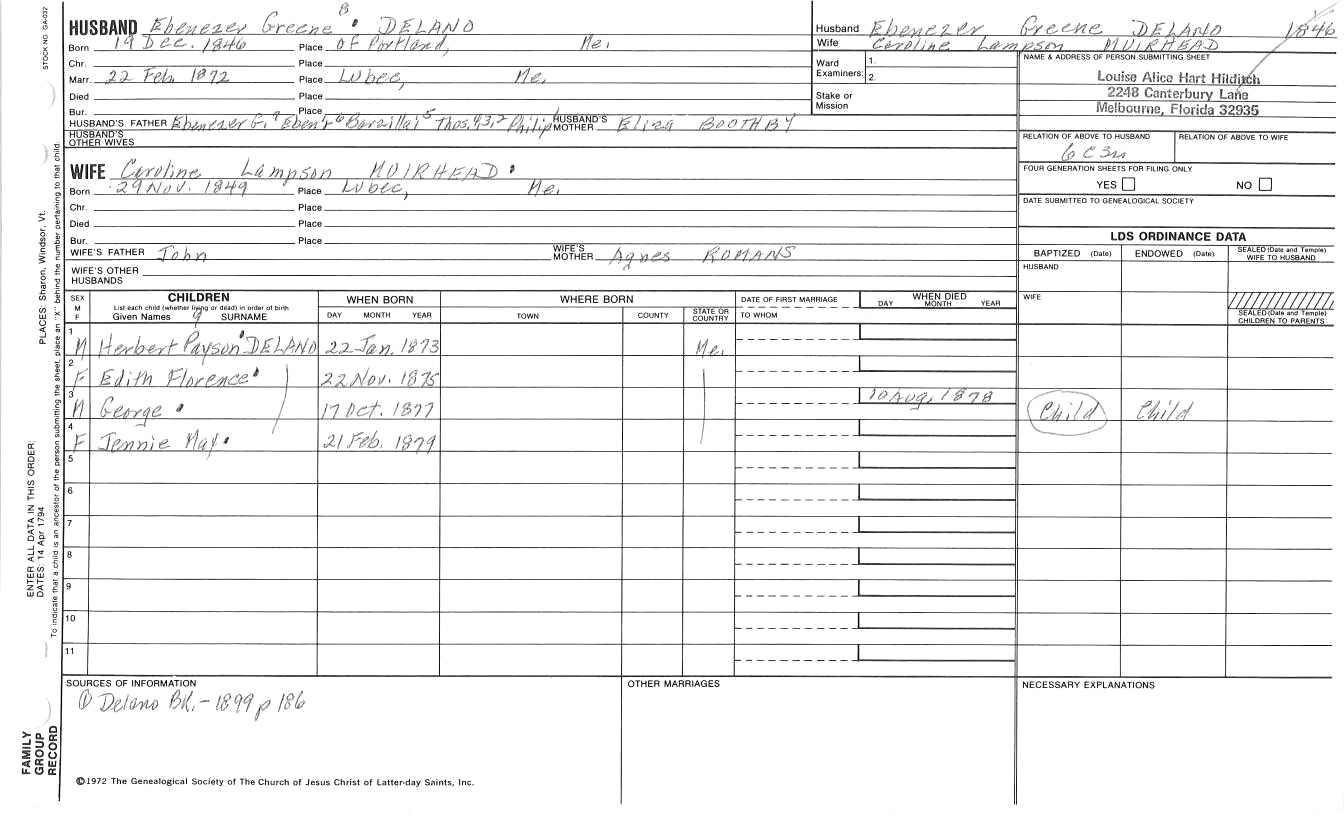 STOCK NO. GA-032
HUSBAND Ebenezer Greene 8 DELANO
Born 19 Dec. 1846 Place of Portland, Me.
Chr. Place
Marr. 22 Feb 1872 Place Lubec, Me.
Died Place
Bur. Place
HUSBAND'S FATHER Ebenezer G.7 Eben'r 6 Barzillai 5 Thos. 4,3,2 Philip HUSBAND'S MOTHER Eliza BOOTHBY
HUSBAND'S OTHER WIVES
WIFE Caroline Lampson MUIRHEAD
Born 29 Nov. 1849 Place Lubec, Me.
Chr. Place
Died Place
Bur. Place
WIFE'S FATHER John WIFE'S MOTHER Agnes ROMANS
WIFE'S OTHER HUSBANDS
Husband Ebenezer Greene DELANO 1846
Wife Caroline Lampson MUIRHEAD
Ward Examiners: 1.
2.
Stake or Mission
NAME & ADDRESS OF PERSON SUBMITTING SHEET
Louise Alice Hart Hilditch
2248 Canterbury Lane
Melbourne, Florida 32935
RELATION OF ABOVE TO HUSBAND RELATION OF ABOVE TO WIFE
6C3R
FOUR GENERATION SHEETS FOR FILING ONLY
YES NO
DATE SUBMITTED TO GENEALOGICAL SOCIETY
LDS ORDINANCE DATA
BAPTIZED (Date) ENDOWED (Date) SEALED (Date and Temple) WIFE TO HUSBAND
HUSBAND
WIFE
SEALED (Date and Temple) CHILDREN TO PARENTS
SEX M F
CHILDREN
List each child (whether living or dead) in order of birth
Given Names 9 SURNAME
WHEN BORN
DAY MONTH YEAR
WHERE BORN
TOWN COUNTY STATE OR COUNTRY
DATE OF FIRST MARRIAGE
TO WHOM
WHEN DIED
DAY MONTH YEAR
1 M Herbert Payson DELANO 22 Jan. 1873 Me.
2 F Edith Florence 22 Nov. 1875
3 M George 17 Oct. 1877 10 Aug. 1878 Child Child
4 F Jennie May 21 Feb. 1879
5
6
7
8
9
10
11
SOURCES OF INFORMATION
① Delano BK. - 1899 p 186
OTHER MARRIAGES
NECESSARY EXPLANATIONS
©1972 The Genealogical Society of The Church of Jesus Christ of Latter-day Saints, Inc.
FAMILY GROUP RECORD
ENTER ALL DATA IN THIS ORDER:
DATES: 14 Apr 1794 PLACES: Sharon, Windsor, Vt.
To indicate that a child is an ancestor of the person submitting the sheet, place an "X" behind the number pertaining to that child